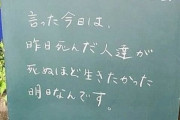 言った今日は、
昨日死んだ人達が
死ぬほど生きたかった
明日なんです。